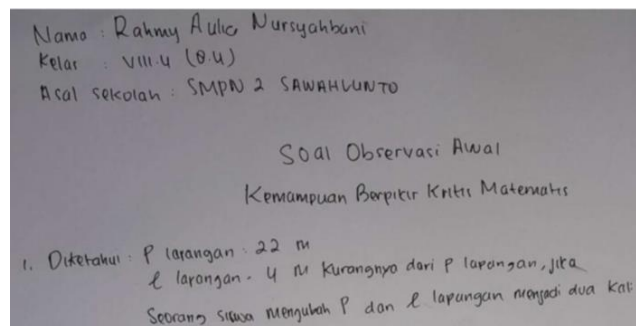 Nama : Rahmy Aulia Nursyahbani
Kelas : VIII.4 (8.4)
Asal sekolah : SMPN 2 SAWAHLUNTO
Soal Observasi Awal
Kemampuan Berpikir Kritis Matematis
1. Diketahui : P lapangan : 22 m
l lapangan = 4 m kurangnya dari P lapangan, jika
Seorang siswa mengubah P dan l lapangan menjadi dua kali